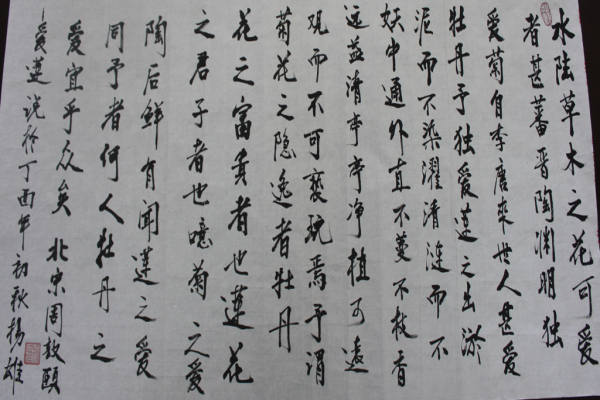 水陆草木之花可爱
者甚蕃晋陶渊明独
爱菊自李唐来世人甚爱
牡丹予独爱莲之出淤
泥而不染濯清涟而不
妖中通外直不蔓不枝香
远益清亭亭净植可遠
观而不可亵玩焉予谓
菊花之隐逸者牡丹
花之富贵者也莲花
之君子者也噫菊之爱
陶后鲜有闻莲之爱
同予者何人牡丹之
爱宜乎众矣 北宋周敦颐
爱莲说於丁酉年初秋杨雄